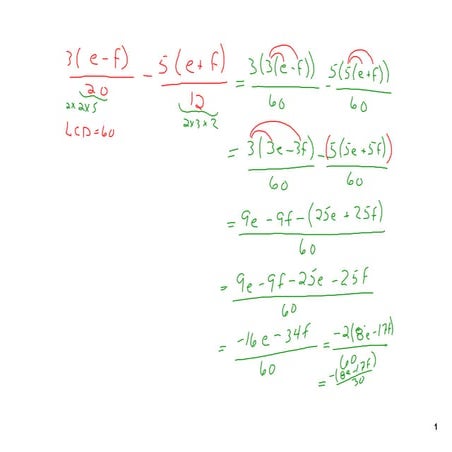 3(e-f)/20 - 5(e+f)/12 = 3(3(e-f))/60 - 5(5(e+f))/60
2x2x5 2x3x2
LCD=60
= 3(3e-3f)/60 - (5(5e+5f))/60
= 9e-9f-(25e+25f)/60
= 9e-9f-25e-25f/60
= -16e-34f/60 = -2(8e-17f)/60
= -(8e-17f)/30
1